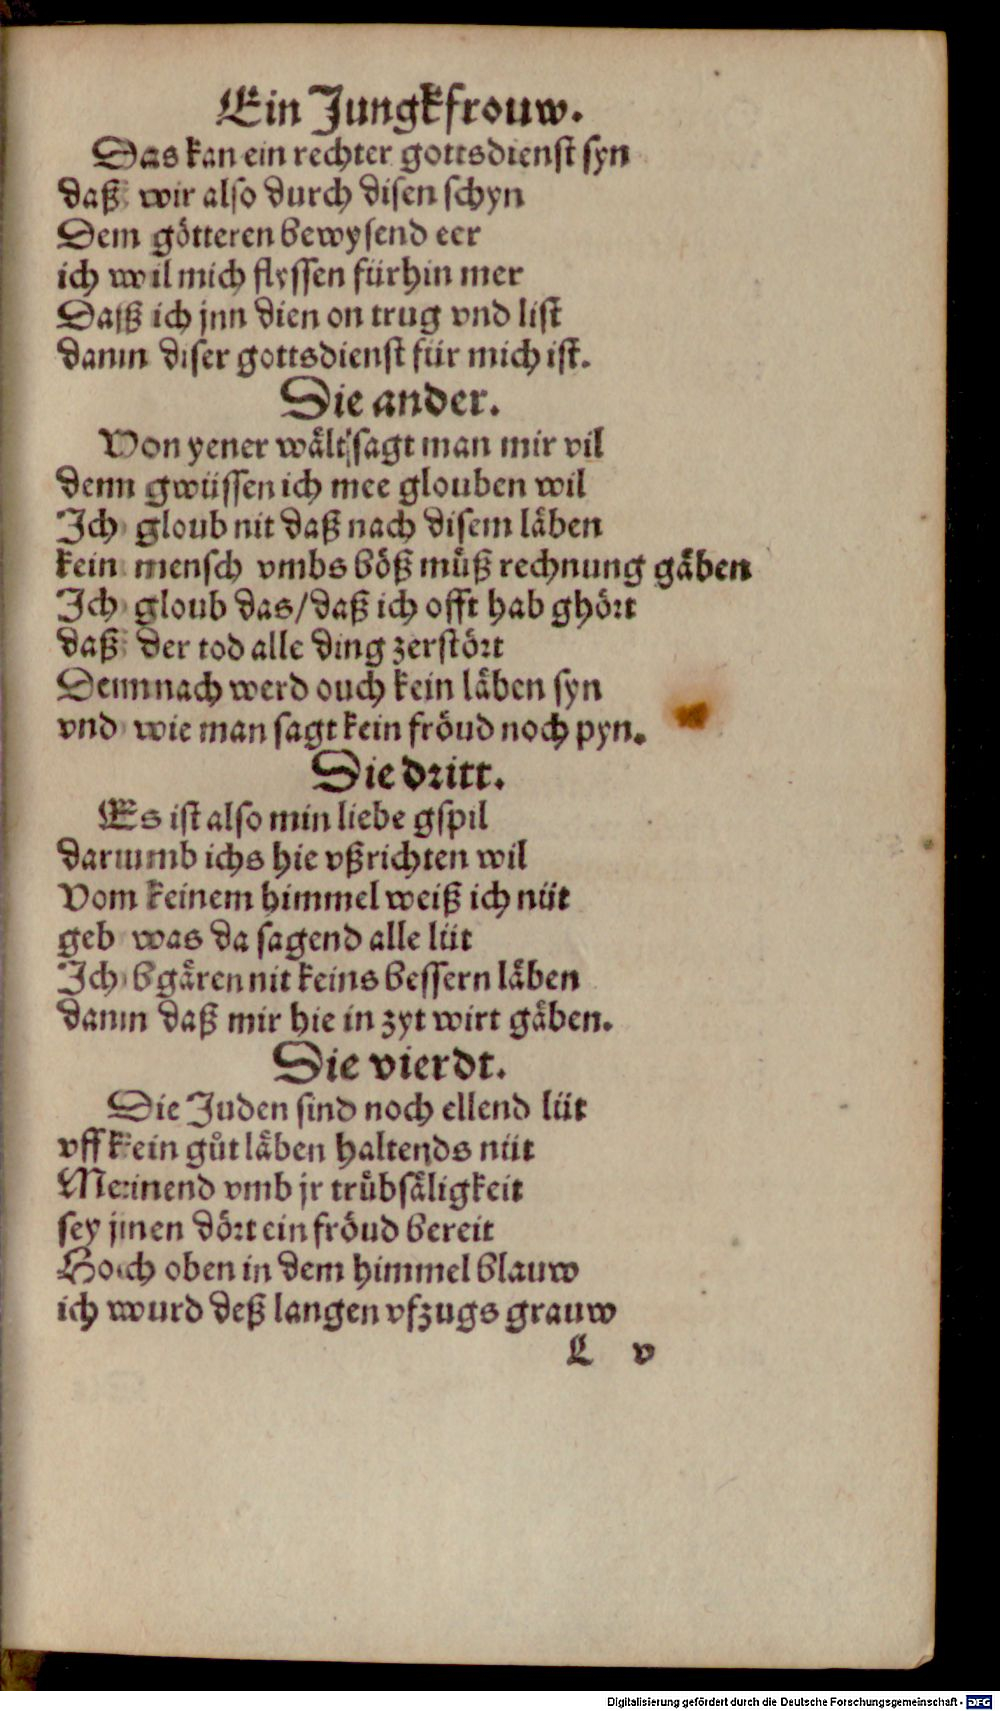 Ein Jungkfrouw.
Das kan ein rechter gottsdienst syn
daß wir also durch disen schyn
Dem götteren bewysend eer
ich wil mich flyssen fürhin mer
Daß ich jnn dien on trug vnd list
dann diser gottsdienst für mich ist.
Die ander.
Von yener wält sagt man mir vil
denn gwüssen ich mee glouben wil
Ich gloub nit daß nach disem läben
kein mensch vmbs böß muͦß rechnung gäben
Ich gloub das/daß ich offt hab ghört
daß der tod alle ding zerstört
Demnach werd ouch kein läben syn
vnd wie man sagt kein fröud noch pyn.
Die dritt.
Es ist also min liebe gspil
darumb ichs hie vßrichten wil
Vom keinem himmel weiß ich nüt
geb was da sagend alle lüt
Ich bgären nit keins bessern läben
dann daß mir hie in zyt wirt gäben.
Die vierdt.
Die Juden sind noch ellend lüt
vff kein guͦt läben haltends nüt
Meinend vmb jr truͤbsäligkeit
sey jnen dört ein fröud bereit
Hoch oben in dem himmel blauw
ich wurd deß langen vfzugs grauw
L v
Digitalisierung gefördert durch die Deutsche Forschungsgemeinschaft - DFG